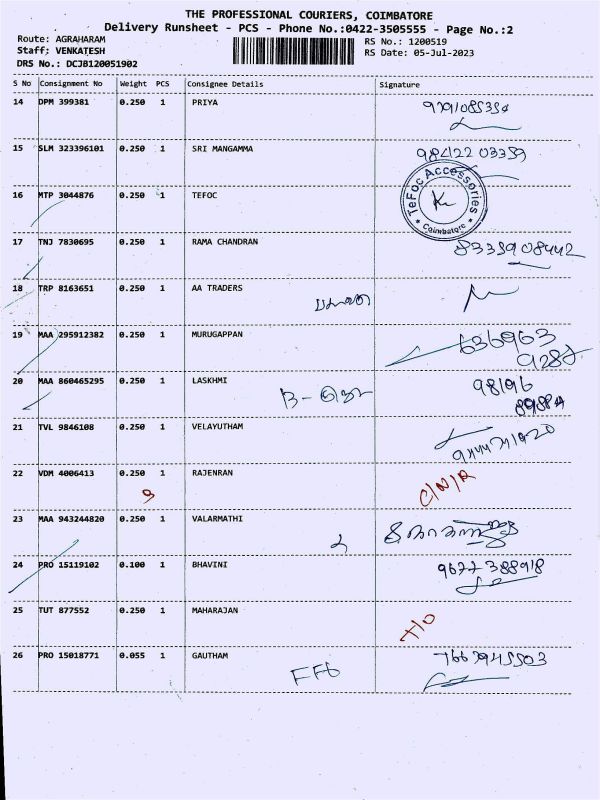 THE PROFESSIONAL COURIERS, COIMBATORE
Delivery Runsheet - PCS - Phone No.:0422-3505555 - Page No.:2
Route: AGRAHARAM
RS No.: 1200519
Staff: VENKATESH
RS Date: 05-Jul-2023
DRS No.: DCJB120051902
S No Consignment No Weight PCS Consignee Details Signature
14 DPM 399381 0.250 1 PRIYA
15 SLM 323396101 0.250 1 SRI MANGAMMA 98422 03359
16 MTP 3044876 0.250 1 TEFOC
TeFoc Accessories
* Coimbatore *
17 TNJ 7830695 0.250 1 RAMA CHANDRAN 8335908442
18 TRP 8163651 0.250 1 AA TRADERS
19 MAA 295912382 0.250 1 MURUGAPPAN 636963
20 MAA 860465295 0.250 1 LASKHMI 98196
21 TVL 9846108 0.250 1 VELAYUTHAM
22 VDM 4006413 0.250 1 RAJENRAN C/N/R
9
23 MAA 943244820 0.250 1 VALARMATHI
2
24 PRO 15119102 0.100 1 BHAVINI 9677 388918
25 TUT 877552 0.250 1 MAHARAJAN
26 PRO 15018771 0.055 1 GAUTHAM 7667945503
FF6